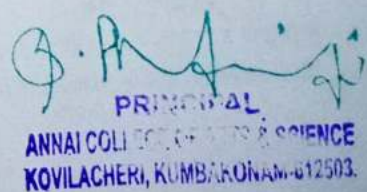 PRINCIPAL
ANNAI COLLEGE OF ARTS & SCIENCE
KOVILACHERI, KUMBAKONAM-612503.